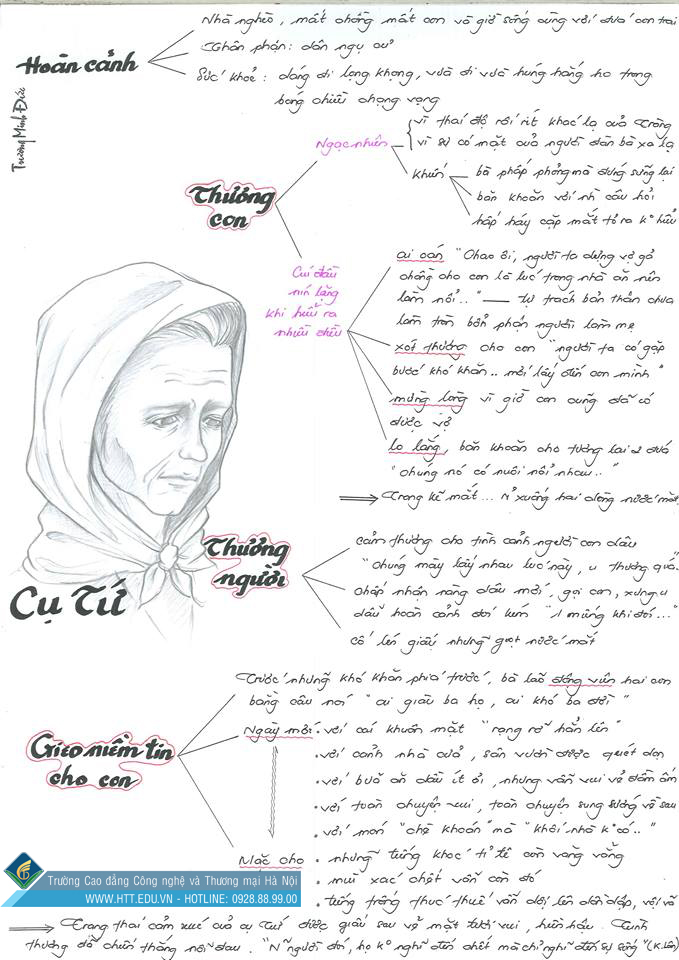 Nhà nghèo, mất chồng mất con và giờ sống cùng với đứa con trai
Thân phận: dân ngụ cư
Hoàn cảnh
Sức khoẻ: dáng đi lọng khọng, vừa đi vừa húng hắng ho trong
bóng chiều chạng vạng
Trương Minh Đức
Thương
con
Ngạc nhiên
vì thái độ rối rít khác lạ của Tràng
vì sự có mặt của người đàn bà xa lạ
khiến
bà phấp phỏng mà đứng sững lại
băn khoăn với nh câu hỏi
hấp háy cặp mắt tỏ ra k° hiểu
Cúi đầu
nín lặng
khi hiểu ra
nhiều điều
ai oán "Chao ôi, người ta dựng vợ gả
chồng cho con là lúc trong nhà ăn nên
làm nổi.." — tự trách bản thân chưa
làm tròn bổn phận người làm mẹ
xót thương cho con "người ta có gặp
bước khó khăn.. mới lấy đến con mình"
mừng lòng vì giờ con cũng đã có
được vợ
lo lắng, băn khoăn cho tương lai 2 đứa
"chúng nó có nuôi nổi nhau.."
⟹ Trong kẽ mắt... rỉ xuống hai dòng nước mắt
Thương
người
cảm thương cho tình cảnh người con dâu
"chúng mày lấy nhau lúc này, u thương quá.
chấp nhận nàng dâu mới, gọi con, xưng u
dẫu hoàn cảnh đói kém
cố lén giấu những giọt nước mắt
Cụ Tứ
Gieo niềm tin
cho con
Trước những khó khăn phía trước, bà lão động viên hai con
bằng câu nói "ai giàu ba họ, ai khó ba đời"
Ngày mới
. với cái khuôn mặt "rạng rỡ hẳn lên"
. với cảnh nhà cửa, sân vườn được quét dọn
. với bữa ăn dẫu ít ỏi, nhưng vẫn vui vẻ đầm ấm
. với toàn chuyện vui, toàn chuyện sung sướng về sau
. với món "chè khoán" mà "khối nhà k° có.."
Mặc cho
. những tiếng khóc tỉ tê còn vang vẳng
. mùi xác chết vẫn còn đó
. tiếng trống thúc thuế vẫn dội lên dồn dập, vội vã
Trường Cao đẳng Công nghệ và Thương mại Hà Nội
WWW.HTT.EDU.VN - HOTLINE: 0928.88.99.00
⟹ Trạng thái cảm xúc của cụ Tứ được giấu sau vẻ mặt tươi vui, hiền hậu. Tình
thương đã chiến thắng nỗi đau. "N~ người đói, họ k° nghĩ đến chết mà chỉ nghĩ đến sự sống" (K.Lân)